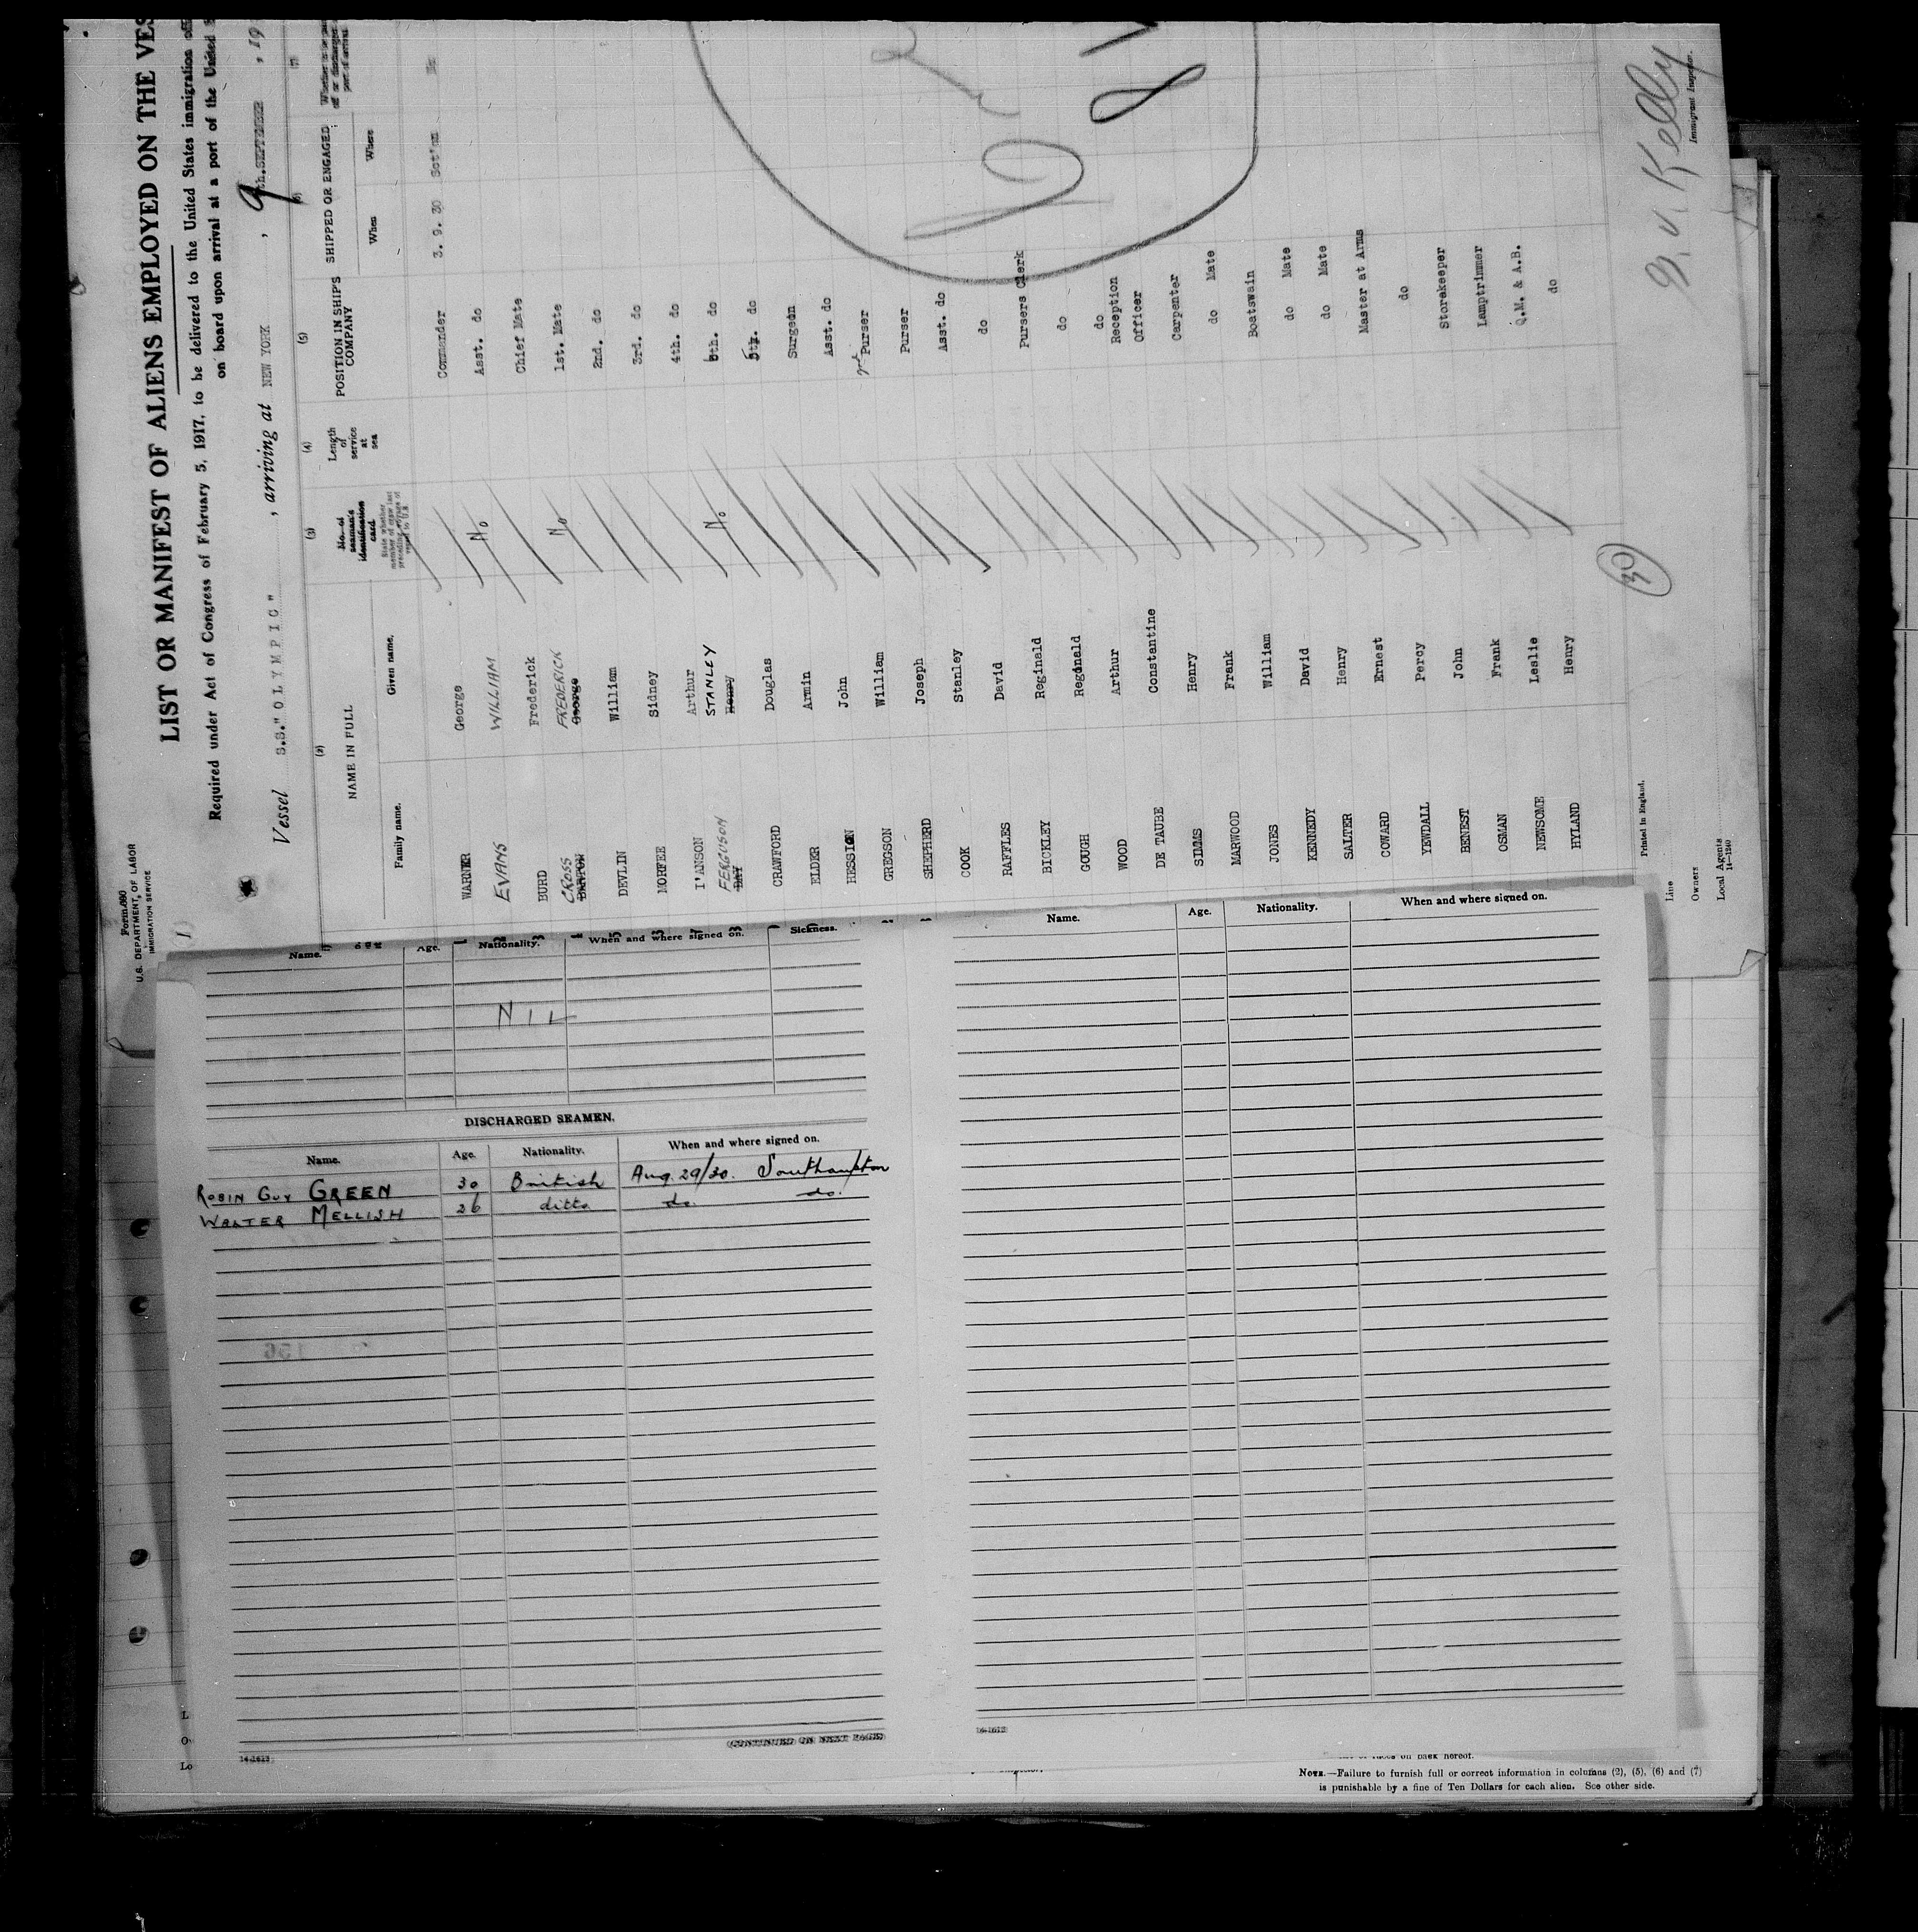 Form 680
U.S. DEPARTMENT OF LABOR
IMMIGRATION SERVICE
LIST OR MANIFEST OF ALIENS EMPLOYED ON THE VES
Required under Act of Congress of February 5, 1917, to be delivered to the United States immigration
on board upon arrival at a port of the United
Vessel S.S."OLYMPIC", arriving at NEW YORK, 9th. SEPTEMBER, 19
(2) (3) (4) (5) (7)
NAME IN FULL
Family name. Given name.
No. of seaman's identification card.
State whether member of crew last preceding voyage of vessel to U.S.
Length of service at sea
POSITION IN SHIP'S COMPANY
SHIPPED OR ENGAGED
When Where
WARNER George Commander 3. 9. 30 Sot'on
EVANS WILLIAM No Asst. do
BURD Frederick Chief Mate
CROSS FREDERICK George No 1st. Mate
DEVLIN William 2nd. do
MORFEE Sidney 3rd. do
I'ANSON Arthur 4th. do
FERGUSON DAY STANLEY Henry No 5th. do
CRAWFORD Douglas 5th. do
ELDER Armin Surgeon
HESSION John Asst. do
GREGSON William Purser
SHEPHERD Joseph Purser
COOK Stanley Asst. do
RAFFLES David do
BICKLEY Reginald Pursers Clerk
GOUGH Reginald do
WOOD Arthur do
DE TAUBE Constantine Reception Officer
SIMMS Henry Carpenter
MARWOOD Frank do Mate
JONES William Boatswain
KENNEDY David do Mate
SALTER Henry do Mate
COWARD Ernest Master at Arms
YEWDALL Percy do
BENEST John Storekeeper
OSMAN Frank Lamptrimmer
NEWSOME Leslie Q.M. & A.B.
HYLAND Henry do
30
Kelly
Immigrant Inspector.
Printed in England.
Line
Owners
Local Agents
14—1240
Name. Age. Nationality. When and where signed on. Sickness.
NIL
DISCHARGED SEAMEN.
Name. Age. Nationality. When and where signed on.
ROBIN GUY GREEN 30 British Aug. 29/30. Southampton
WALTER MELLISH 26 ditto do. do.
(CONTINUED ON NEXT PAGE)
14-1613
Name. Age. Nationality. When and where signed on.
14-1613
L
O
Lo
on back hereof.
NOTE.—Failure to furnish full or correct information in columns (2), (5), (6) and (7)
is punishable by a fine of Ten Dollars for each alien. See other side.